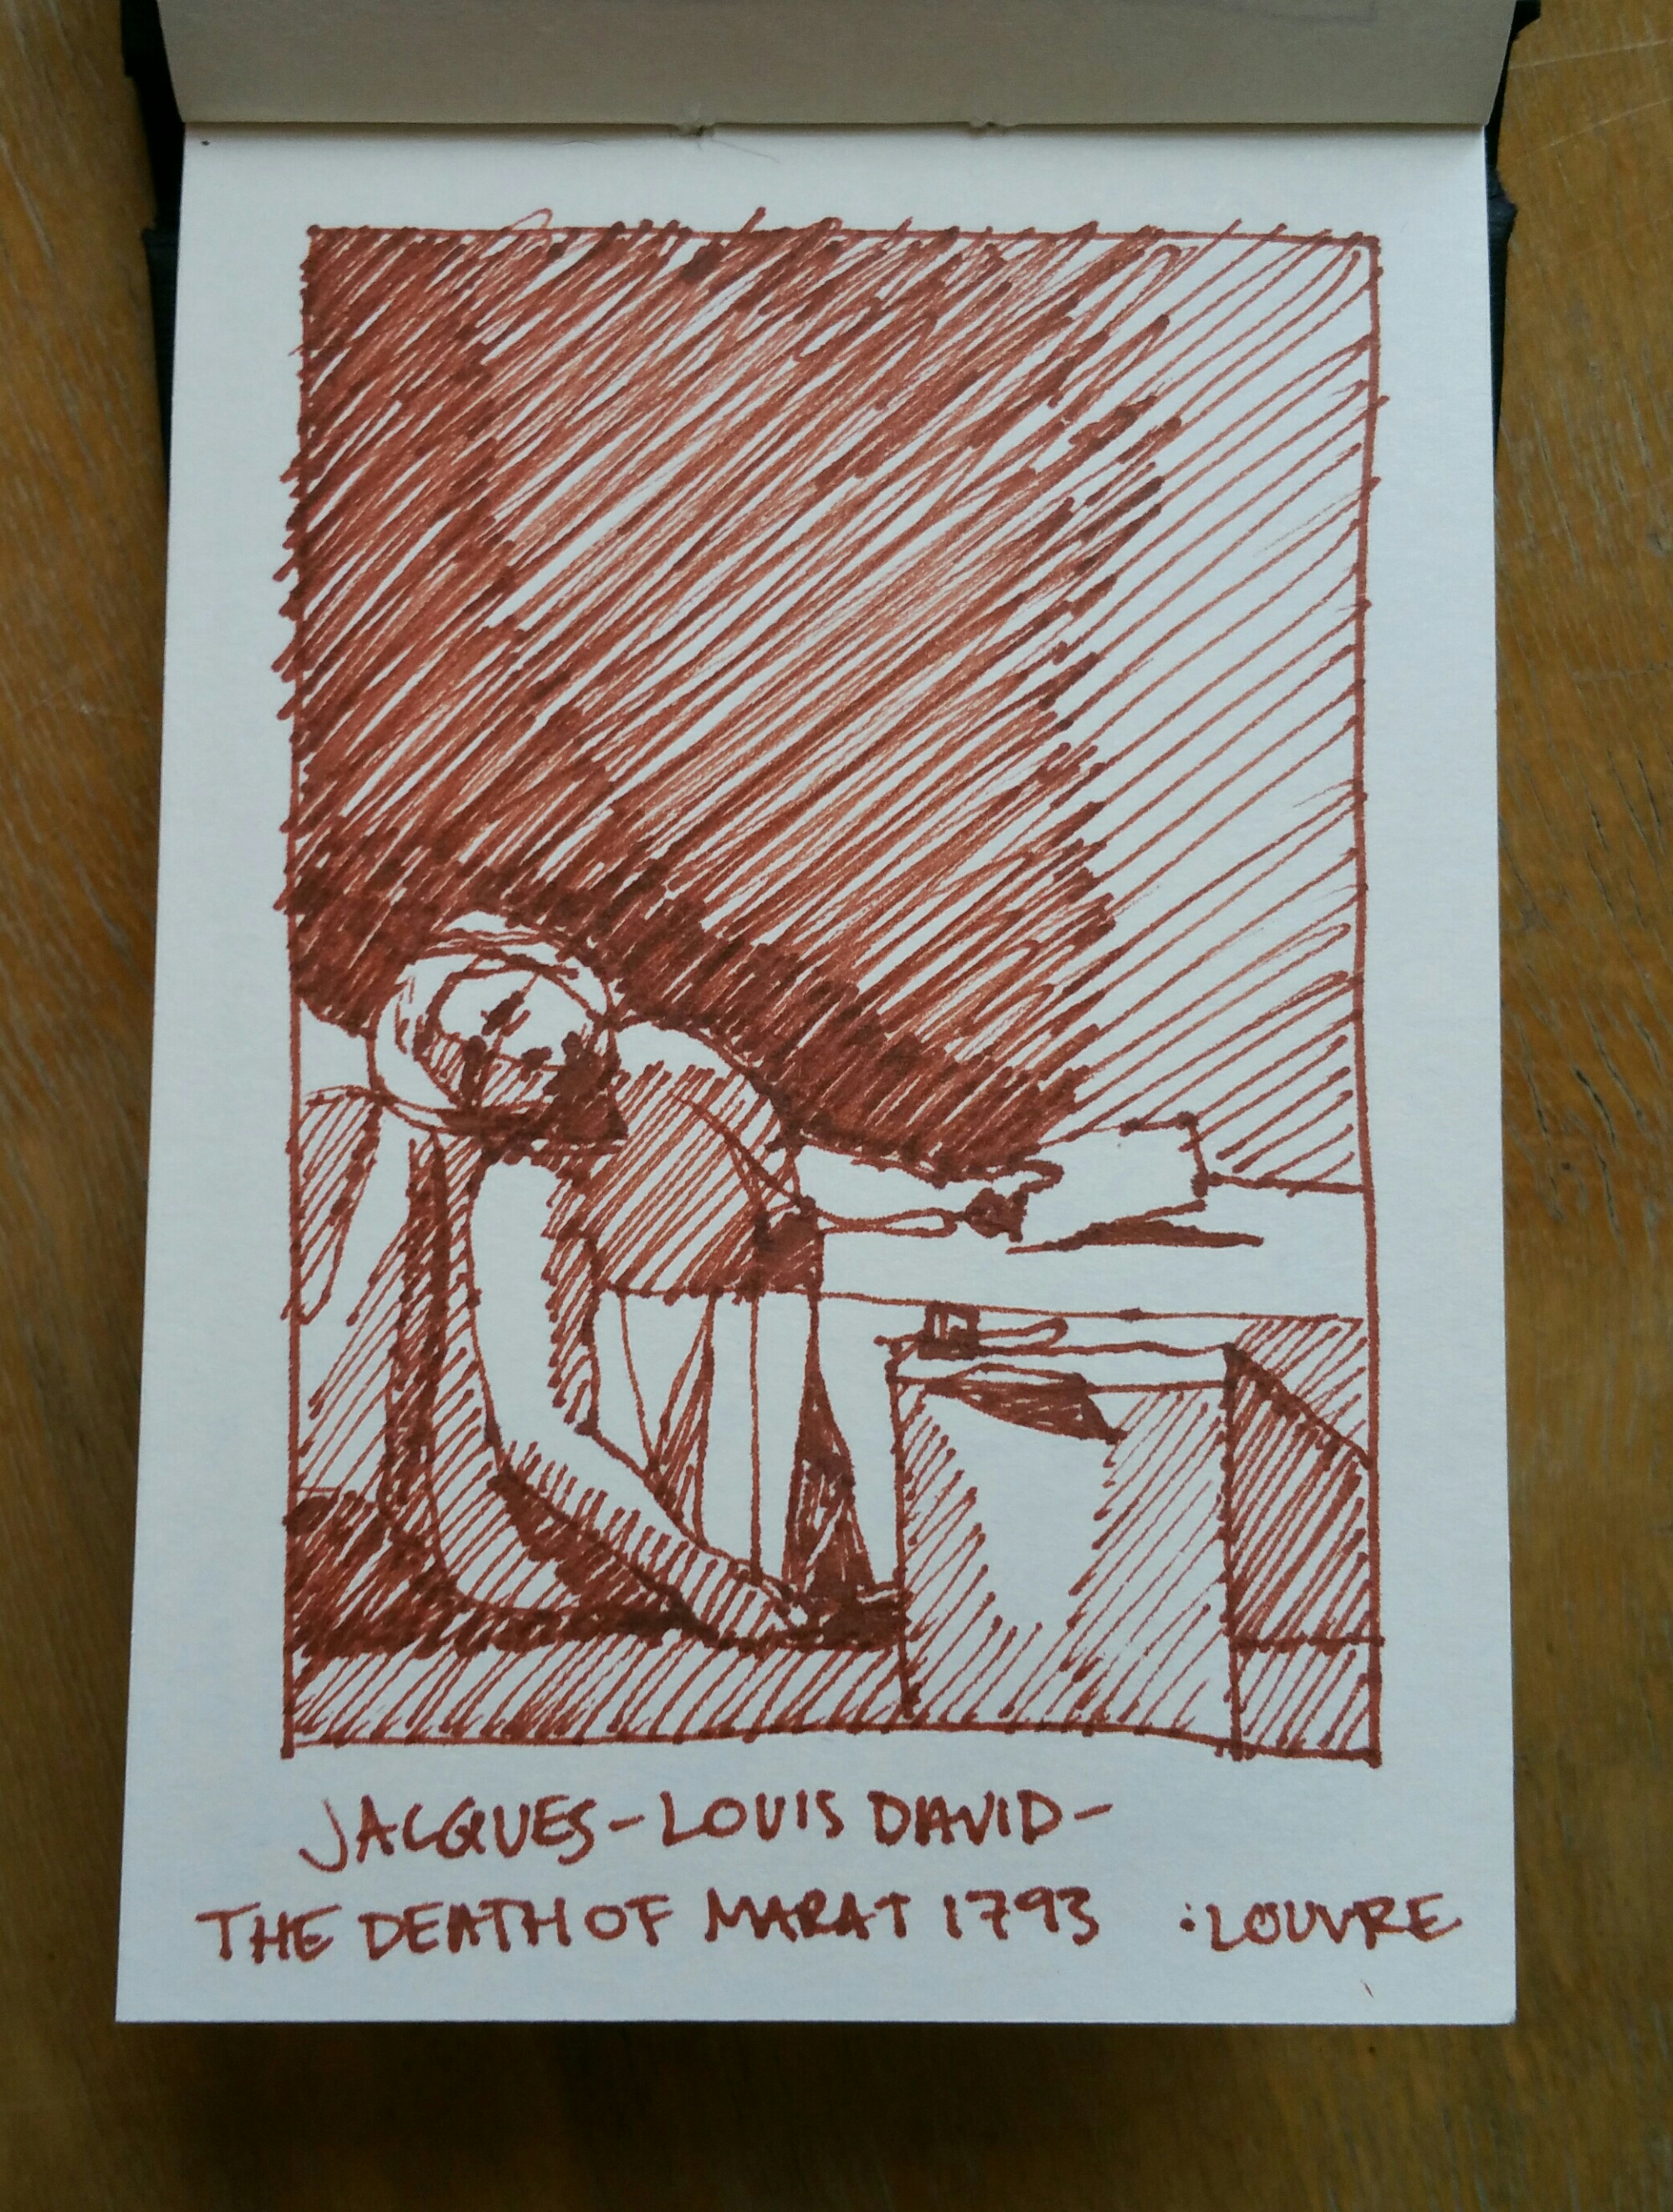 JACQUES-LOUIS DAVID-
THE DEATH OF MARAT 1793 :LOUVRE